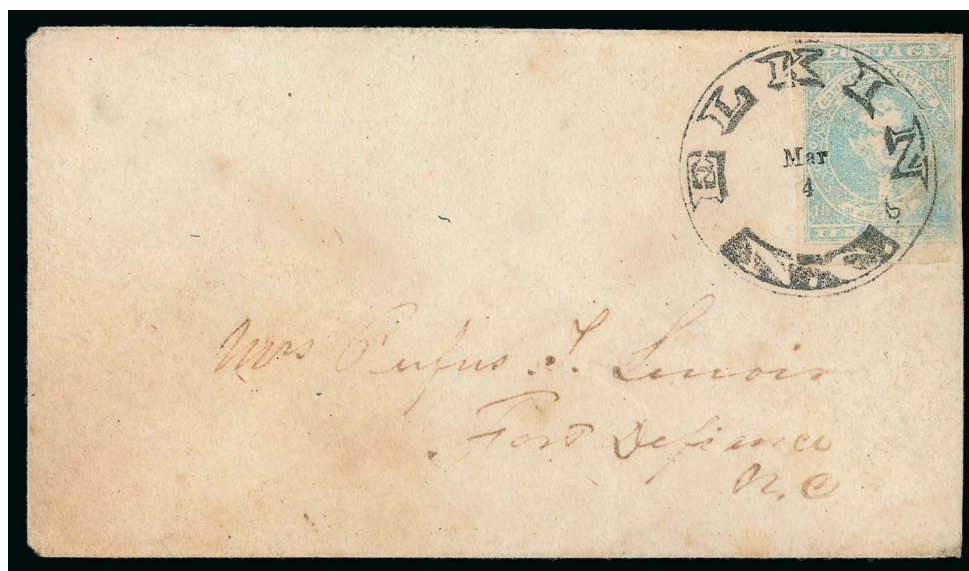 POSTAGE
ELKIN
Mar
4
N.C.
TEN
Mrs Rufus T. Lenoir
Fort Defiance
N.C